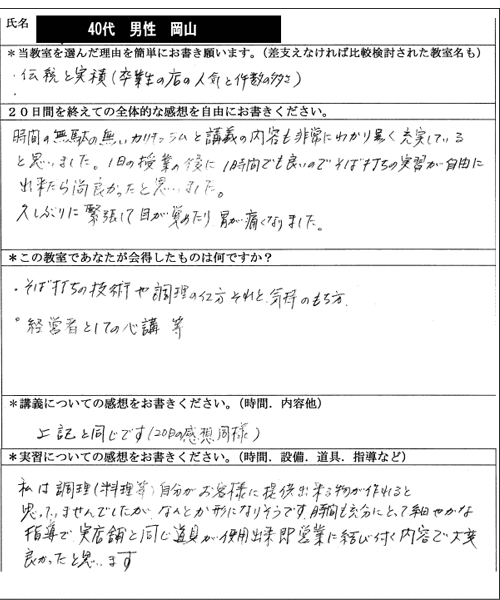 氏名 40代 男性 岡山
＊当教室を選んだ理由を簡単にお書き願います。(差支えなければ比較検討された教室名も)
・伝統と実積(卒業生の店の人気と件数の多さ)
２０日間を終えての全体的な感想を自由にお書きください。
時間の無駄の無いカリキュラムと講義の内容も非常にわかり易く充実している
と思いました。1日の授業の後に1時間でも良いのでそば打ちの実習が自由に
出来たら尚良かったと思いました。
久しぶりに緊張して目が覚めたり胃が痛くなりました。
＊この教室であなたが会得したものは何ですか？
・そば打ちの技術や調理の仕方それと気持のもち方
・経営者としての心講 等
＊講義についての感想をお書きください。(時間．内容他)
上記と同じです(20日の感想同様)
＊実習についての感想をお書きください。(時間．設備．道具．指導など)
私は調理(料理等)自分がお客様に提供出来る物が作れると
思っていませんでしたが なんとか形になりそうです。時間も充分にとって細やかな
指導で実店舗と同じ道具が使用出来即営業に結び付く内容で大変
良かったと思います